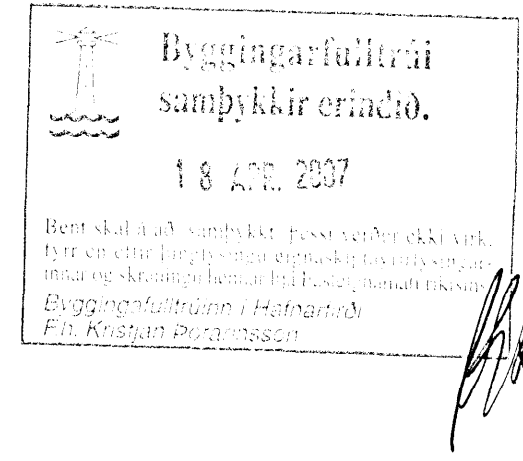 Byggingarfulltrúi
samþykkir erindið.
18 APR. 2007
Bent skal á að samþykkt þessi verður ekki virk
fyrr en eftir þinglýsingu eignaskiptayfirlýsingar-
innar og skráningu hennar hjá Fasteignamati ríkisins
Byggingafulltrúinn í Hafnarfirði
F.h. Kristján Þórarinsson